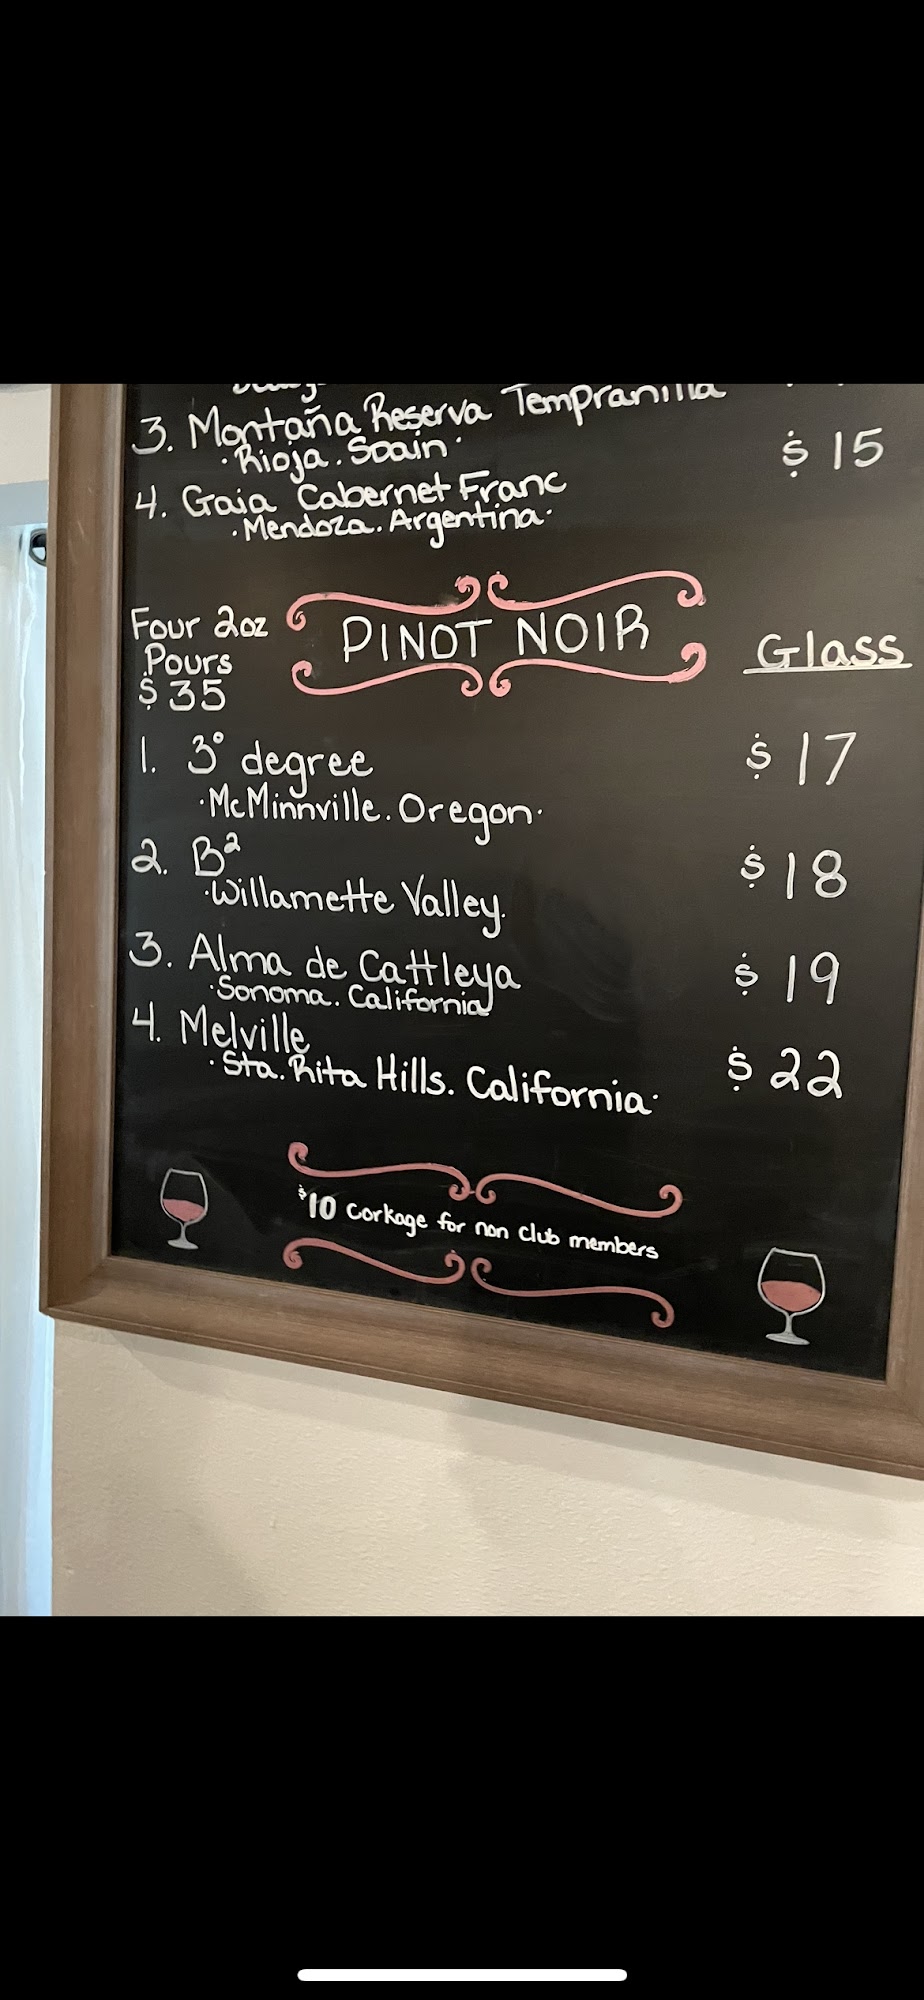 3. Montaña Reserva Tempranilla
·Rioja. Spain·
$15
4. Gaia Cabernet Franc
·Mendoza. Argentina·
Four 2oz
Pours
$35
PINOT NOIR
Glass
1. 3° degree $17
·McMinnville. Oregon·
2. B² $18
·Willamette Valley.
3. Alma de Cattleya $19
·Sonoma. California
4. Melville $22
·Sta. Rita Hills. California·
$10 corkage for non club members